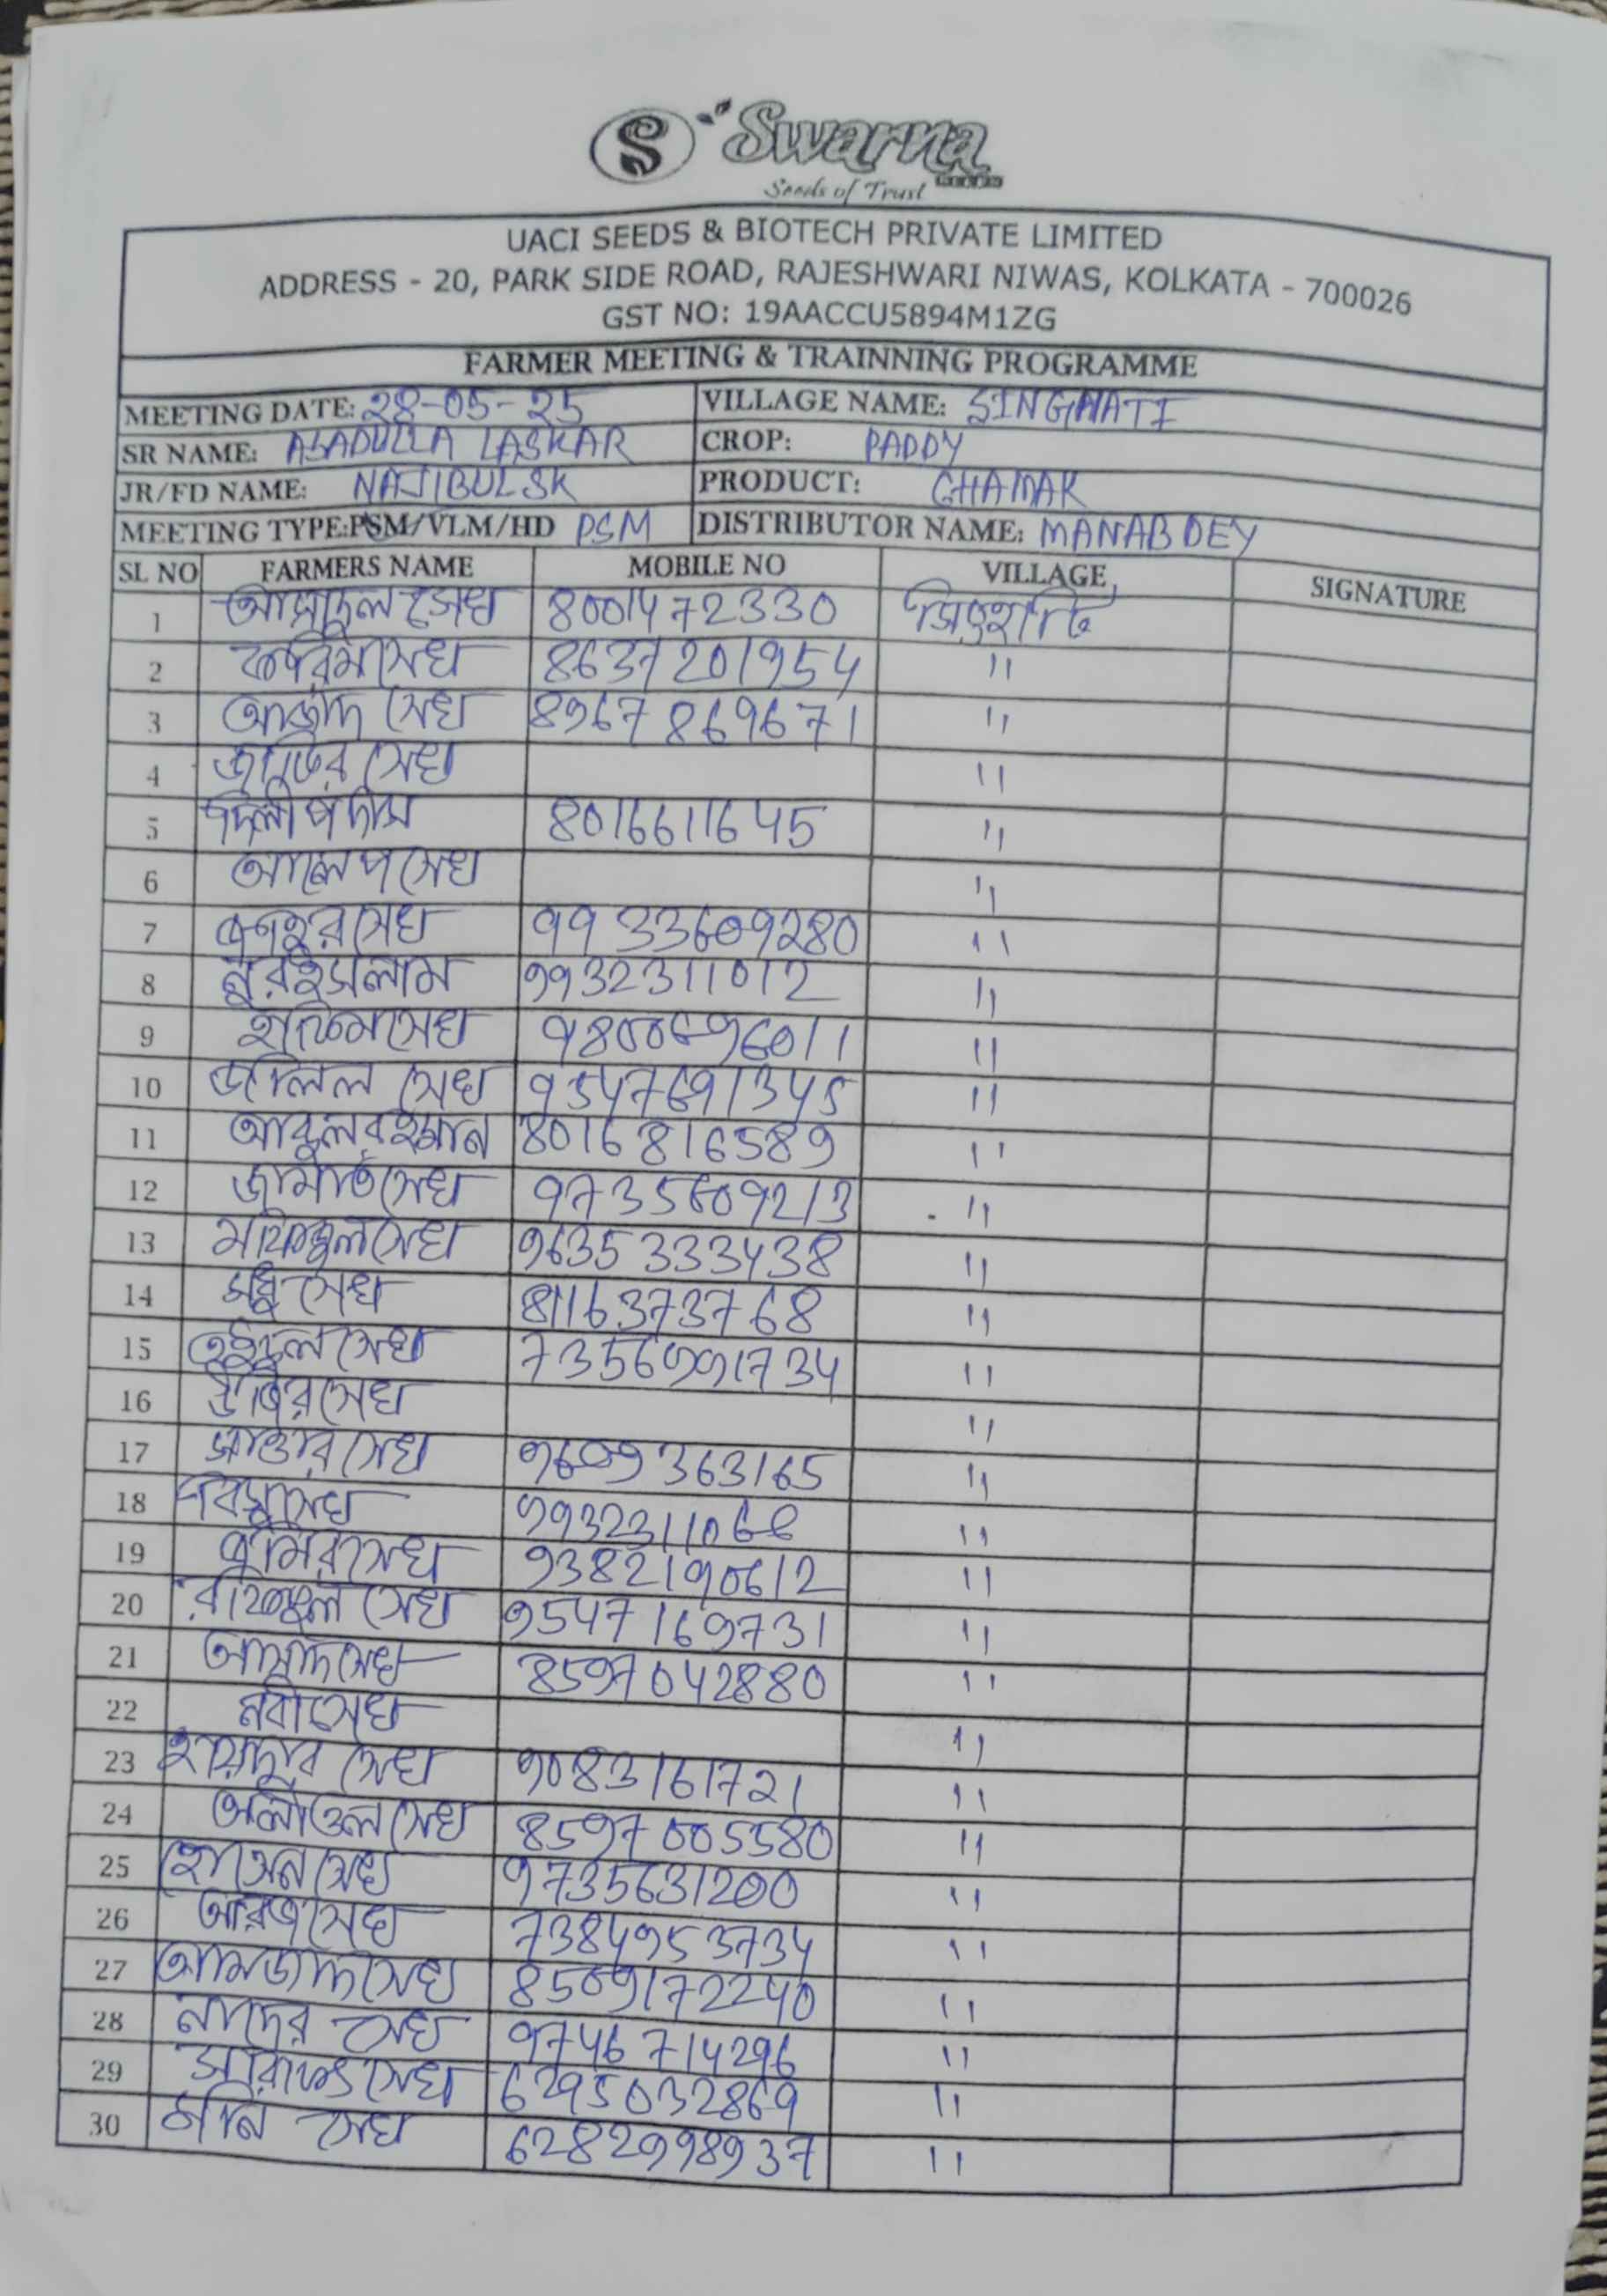 S Swarna
Seeds of Trust
UACI SEEDS & BIOTECH PRIVATE LIMITED
ADDRESS - 20, PARK SIDE ROAD, RAJESHWARI NIWAS, KOLKATA - 700026
GST NO: 19AACCU5894M1ZG
FARMER MEETING & TRAINNING PROGRAMME
MEETING DATE: 28-05-25 VILLAGE NAME: SINGHATI
SR NAME: ASADULLA LASKAR CROP: PADDY
JR/FD NAME: NAJIBUL SK PRODUCT: CHAMAK
MEETING TYPE:PSM/VLM/HD PSM DISTRIBUTOR NAME: MANAB DEY
SL NO FARMERS NAME MOBILE NO VILLAGE SIGNATURE
1 সেখ 8001472330 সিংহাটি
2 করিম সেখ 8637201954 "
3 আজাদ সেখ 8967869671 "
4 সেখ "
5 দিলীপ দাস 8016611645 "
6 আলেপ সেখ "
7 সেখ 9933609280 "
8 নুরইসলাম 9932311012 "
9 হাকিম সেখ 9800696011 "
10 জলিল সেখ 9547691345 "
11 আবুল রহমান 8016816589 "
12 সেখ 9735609213 "
13 মফিজুল সেখ 9635333438 "
14 সেখ 8116373768 "
15 সেখ 7356991734 "
16 উজির সেখ "
17 সাত্তার সেখ 9609363165 "
18 সেখ 9932311068 "
19 সেখ 9382190612 "
20 রফিজুল সেখ 9547169731 "
21 আসাদ সেখ 8597042880 "
22 নবী সেখ "
23 সেখ 9083161721 "
24 সেখ 8597005580 "
25 হোসেন সেখ 9735631200 "
26 আরজ সেখ 7384953734 "
27 আমজাদ সেখ 8509172240 "
28 নাদের সেখ 9746714296 "
29 সেখ 6295032869 "
30 সেখ 6282998937 "